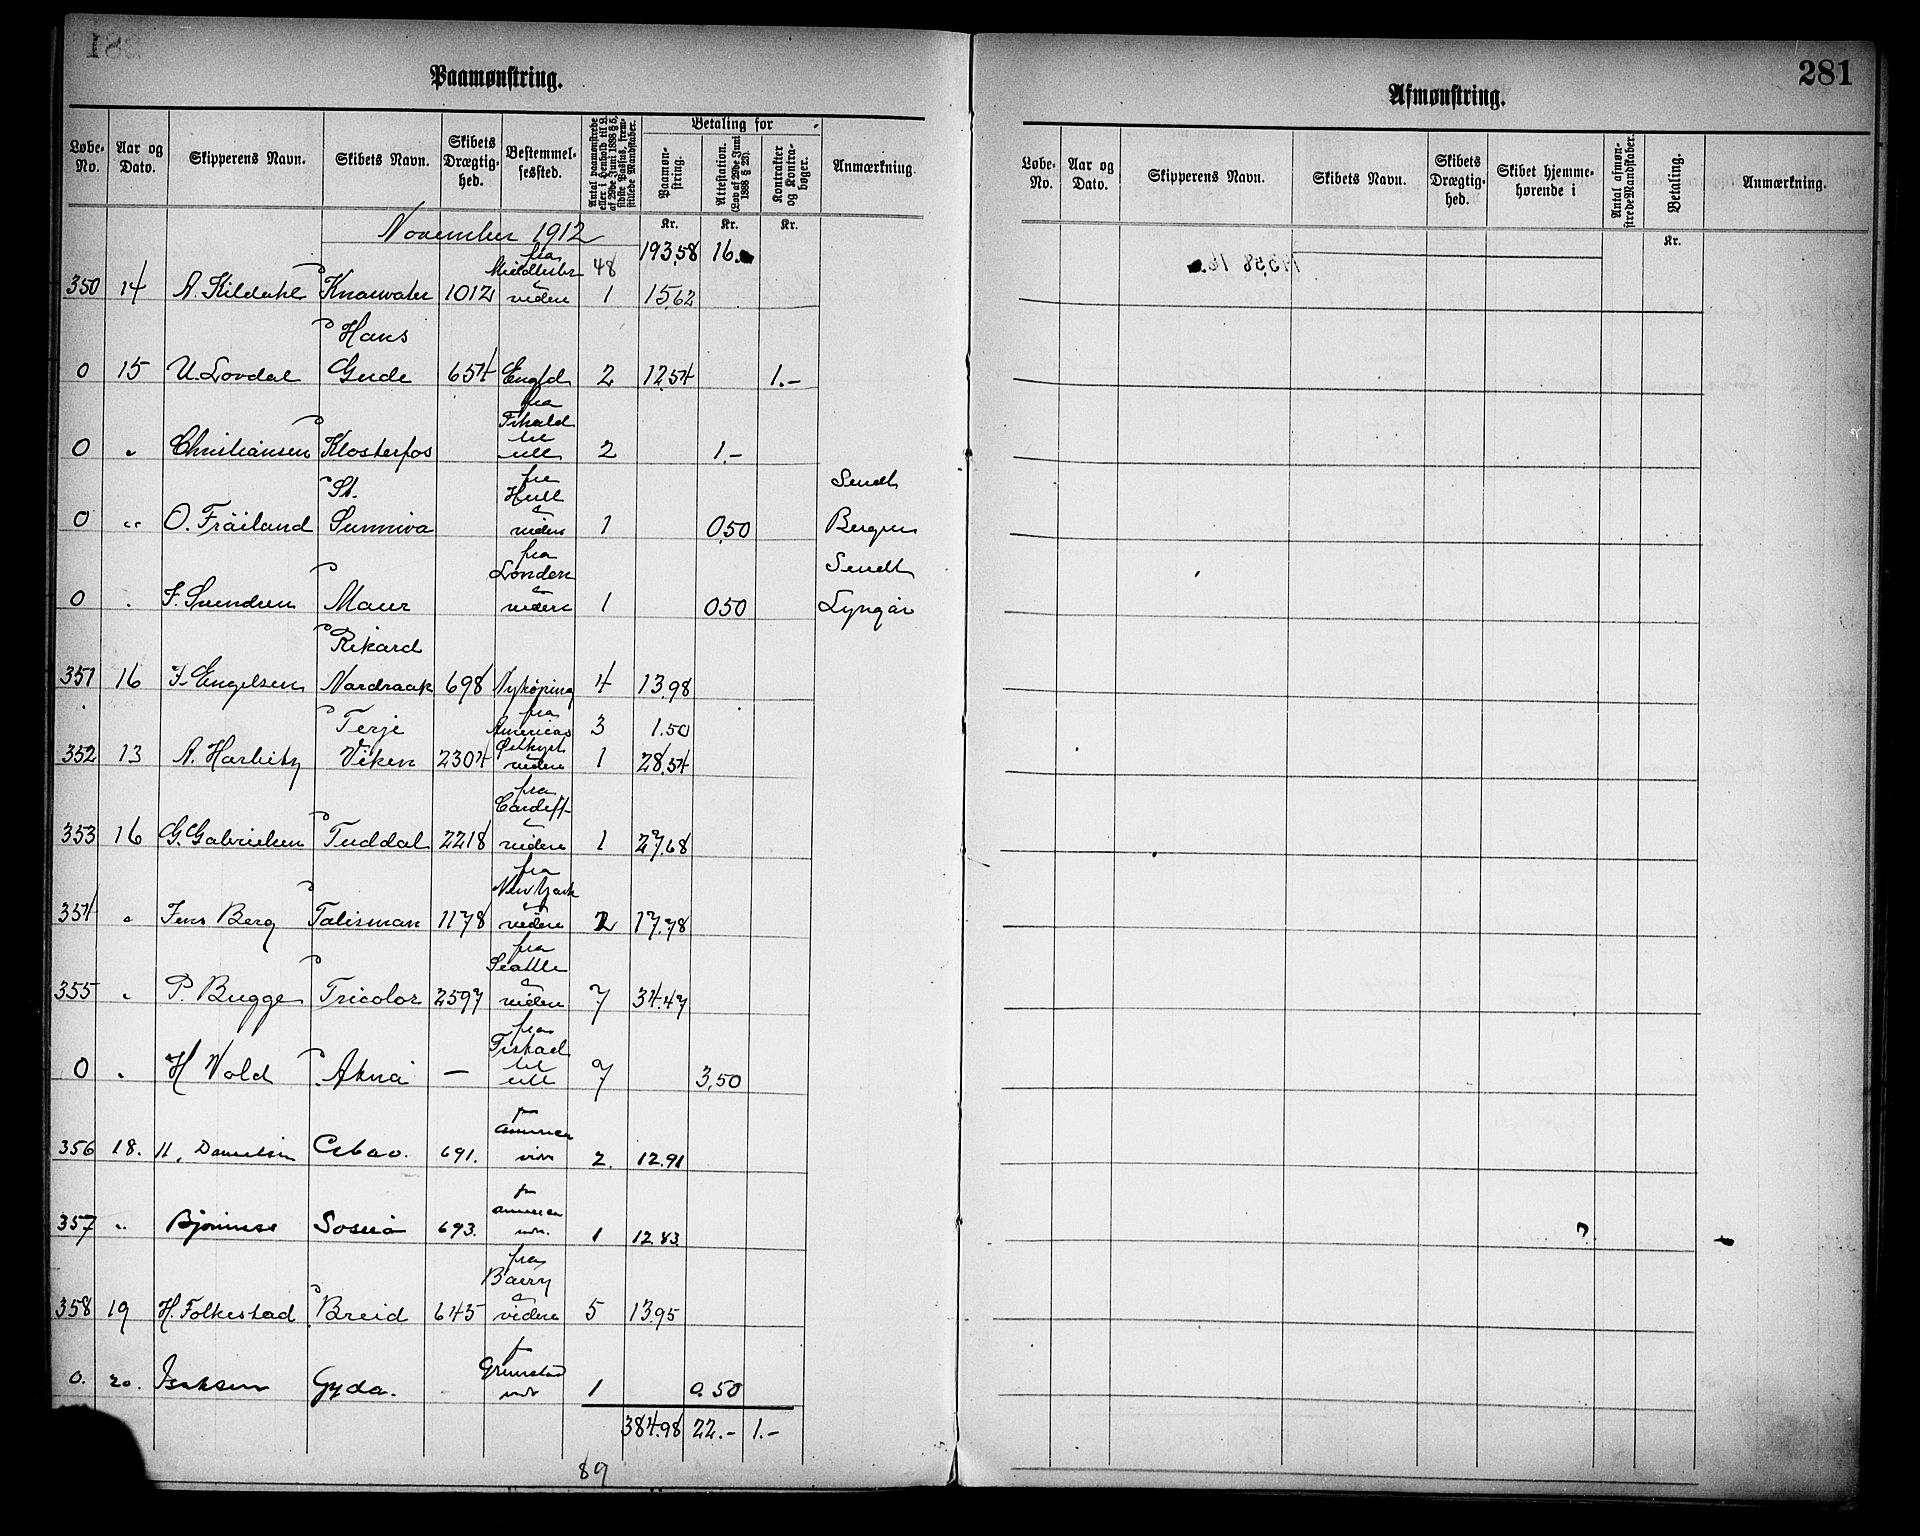 281
Paamønstring.
Løbe-No. Aar og Dato. Skipperens Navn. Skibets Navn. Skibets Drægtig-hed. Bestemmel-sessted. Antal paamønstrede eller i Henhold til L. af 29de Juni 1888 § 5, sidste Passus, frem-stillede Mandskaber. Betaling for Paamøn-string. Attestation. (Lov af 29de Juni 1888 § 23). Kontrakter og Kontra-bøger. Anmærkning.
Kr. Kr. Kr.
November 1912 48 193,58 16.
fra
350 14 A. Kildahl Knarvater 1012 videre 1 15,62
Hans
0 15 U. Lovdal Gude 654 Engld 2 12,54 1.-
fra
til
0 " Christiansen Klosterfos 2 1.-
St. fra Hull Sendt
0 " O. Fröiland Sunniva videre 1 0,50 Bergen
fra London Sendt
0 " F. Svendsen Maur videre 1 0,50 Lyngör
Rikard
351 16 F. Engelsen Nordraak 698 Nykøping 4 13,98
Terje fra Americas 3 1.50
352 13 A. Harbitz Viken 2304 Østkyst videre 1 28,54
fra Cardiff
353 16 G. Gabrielsen Tuddal 2218 videre 1 27,68
fra New York
354 " Jens Berg Talisman 1178 videre 2 17,78
fra Seattle
355 " P. Bugge Tricolor 2597 videre 7 34.47
fra
til
0 " H Vold Aknö — 7 3,50
America
356 18. H. Danielsen Cibao. 691. 2. 12.91
America
357 " Bjønnes Sosuö 693. 1 12.83
fra Barry
358 19 H. Folkestad Breid 645 videre 5 13,95
f Grimstad
0. 20. Isaksen Gyda. 1 0.50
384.98 22.- 1.-
89
281
Afmønstring.
Løbe-No. Aar og Dato. Skipperens Navn. Skibets Navn. Skibets Drægtig-hed. Skibet hjemme-hørende i Antal afmøn-strede Mandskaber. Betaling. Anmærkning.
Kr.